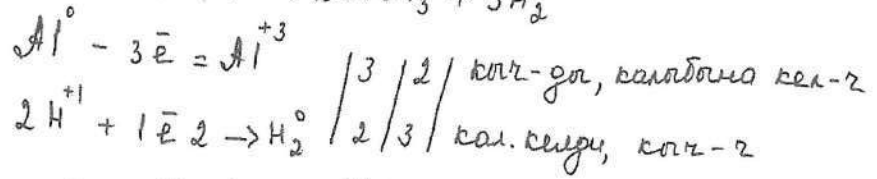 3 + 3H₂
Al⁰ - 3ē = Al⁺³ | 3 | 2 | кыч-ды, калыбына кел-ч
2H⁺¹ + 1ē 2 → H₂⁰ | 2 | 3 | кал. келди, кыч-ч